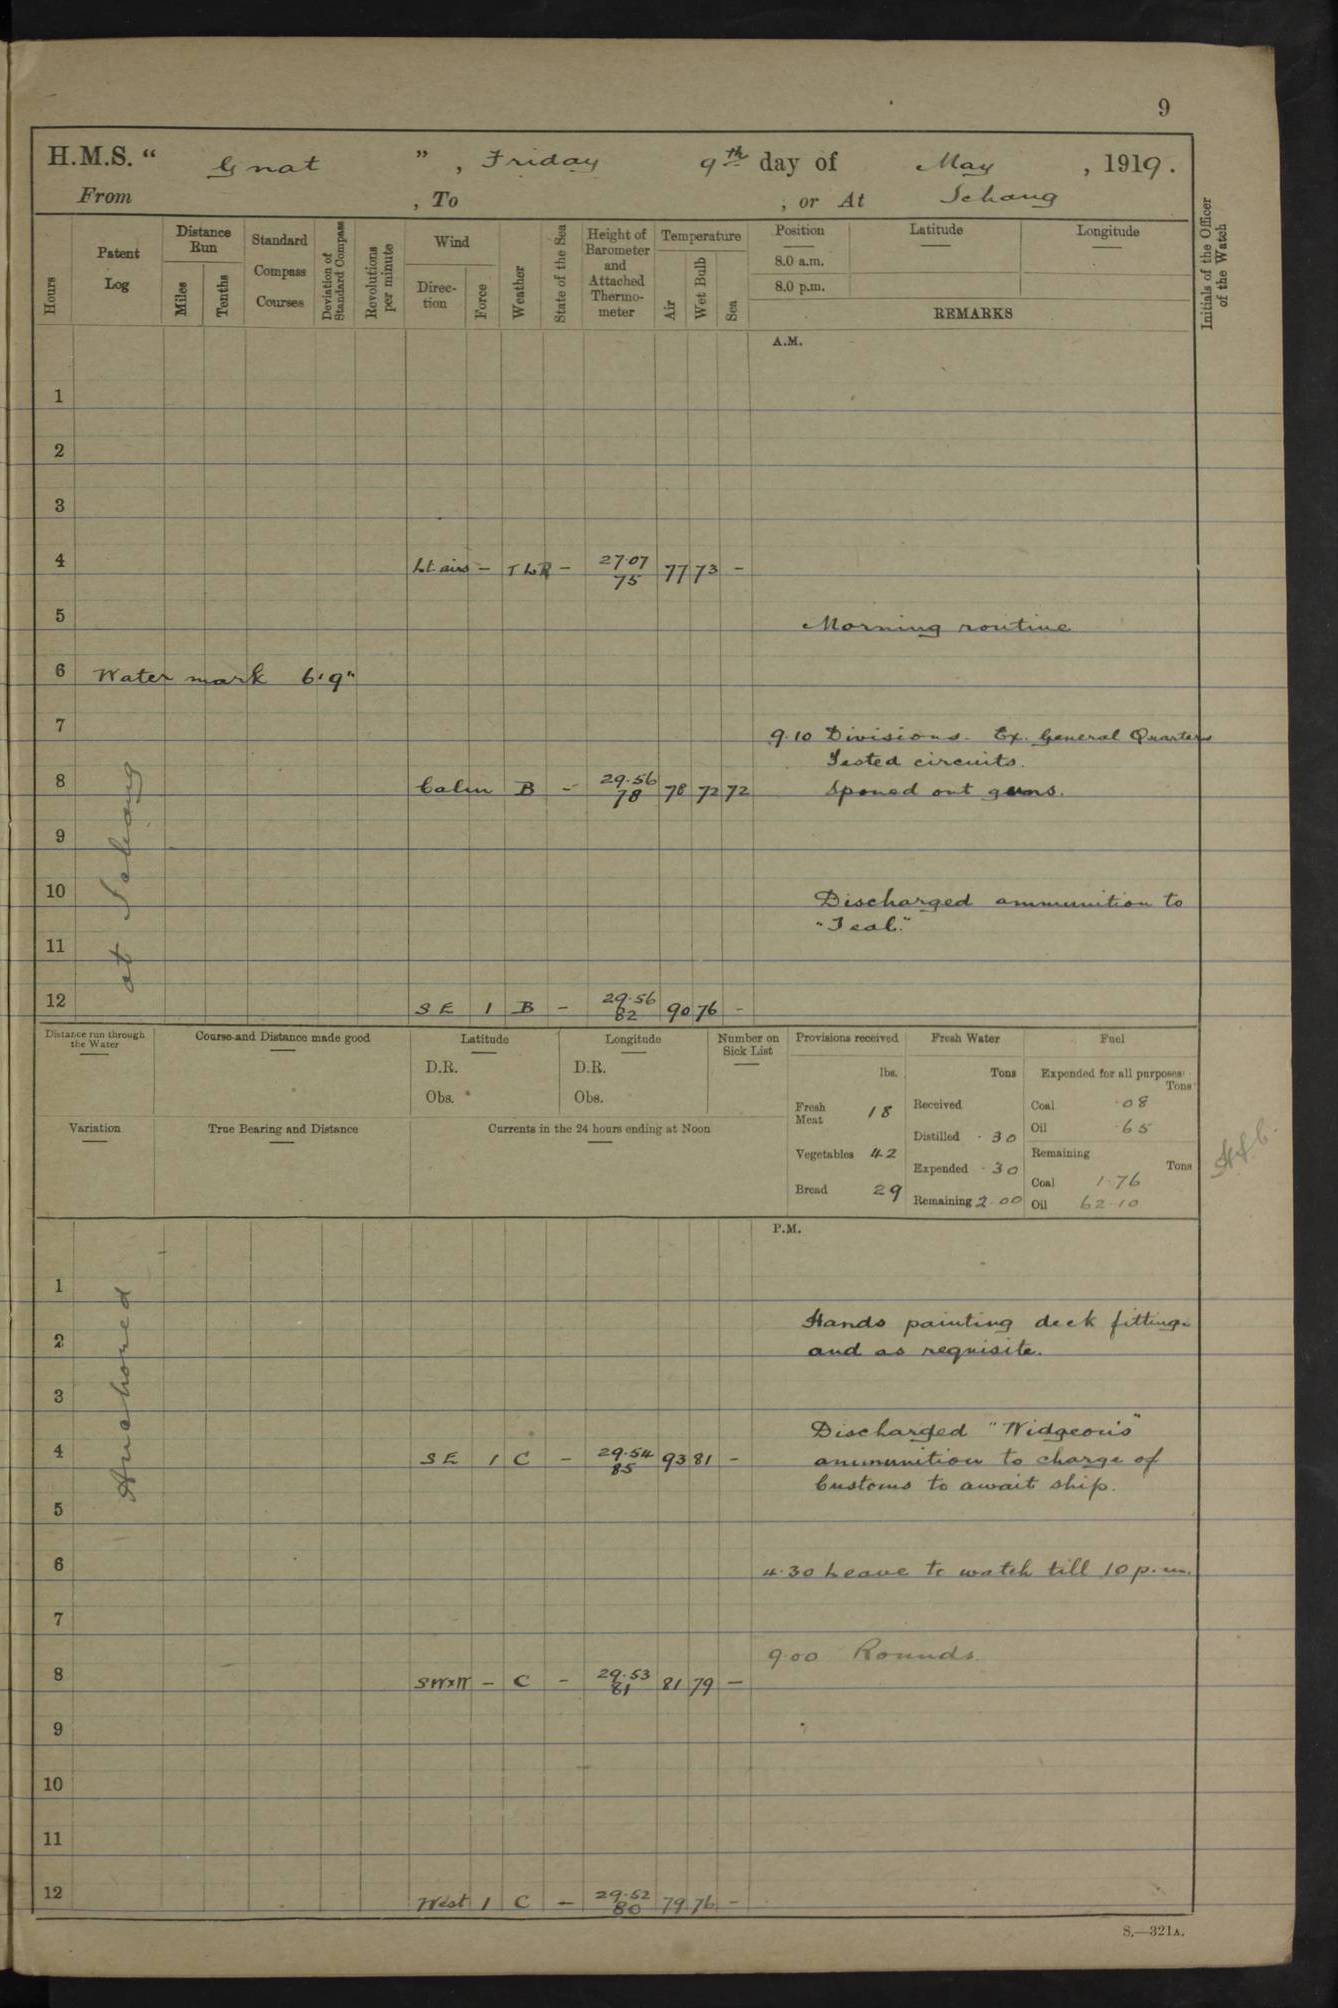 9
H.M.S. “ Gnat ”, Friday 9th day of May, 1919.
From , To , or At Ichang
Hours
Patent Log
Distance Run
Miles
Tenths
Standard Compass Courses
Deviation of Standard Compass
Revolutions per minute
Wind
Direction
Force
Weather
State of the Sea
Height of Barometer and Attached Thermometer
Temperature
Air
Wet Bulb
Sea
Position
8.0 a.m.
8.0 p.m.
Latitude
Longitude
REMARKS
Initials of the Officer of the Watch
A.M.
1
2
3
4 Lt. airs – TLR – 27.07 75 77 73 –
5 Morning routine
6 Water mark 6'9"
7
9.10 Divisions. Ex. General Quarters
Tested circuits.
8 Calm B – 29.56 78 78 72 72 Sponed out guns.
9
10 Discharged ammunition to
"Teal."
11
12 SE 1 B – 29.56 82 90 76 –
at Ichang
Distance run through the Water
Course and Distance made good
Latitude
D.R.
Obs.
Longitude
D.R.
Obs.
Number on Sick List
Provisions received
lbs.
Fresh Meat 18
Vegetables 42
Bread 29
Fresh Water
Tons
Received
Distilled .30
Expended .30
Remaining 2.00
Fuel
Expended for all purposes
Tons
Coal .08
Oil .65
Remaining
Tons
Coal 1.76
Oil 62.10
Variation
True Bearing and Distance
Currents in the 24 hours ending at Noon
P.M.
Anchored
1
2 Hands painting deck fittings
and as requisite.
3
Discharged "Widgeon's"
4 SE 1 C – 29.54 85 93 81 – ammunition to charge of
Customs to await ship.
5
6 4.30 Leave to watch till 10 p.m.
7
9.00 Rounds.
8 SWxW – C – 29.53 81 81 79 –
9
10
11
12 West 1 C – 29.52 80 79 76 –
S.—321A.